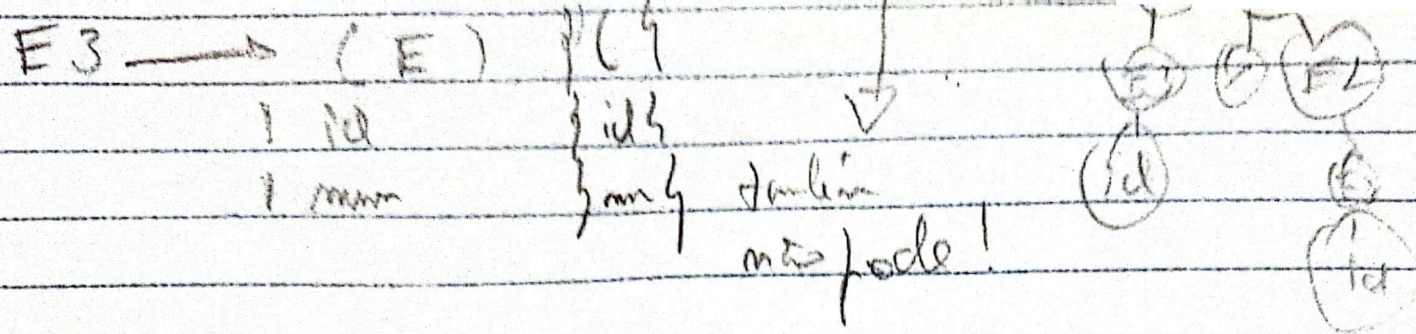 E3 → ( E ) {(}
| id {id}
| num {num} também
não pode!
E2
id
id